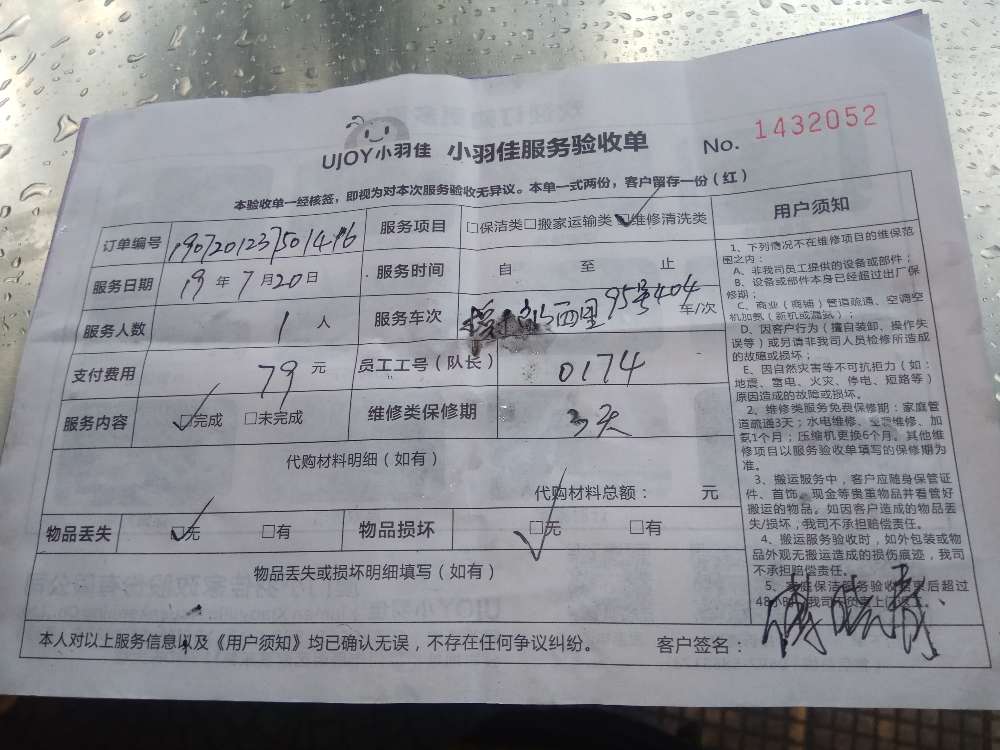 UJOY小羽佳 小羽佳服务验收单 No. 1432052
本验收单一经核签，即视为对本次服务验收无异议。本单一式两份，客户留存一份（红）
订单编号 服务项目 □保洁类□搬家运输类□维修清洗类
服务日期 19年7月20日 服务时间 自 至 止
服务人数 1人 服务车次 西里95号404 车/次
支付费用 79元 员工工号（队长） 0174
服务内容 □完成 □未完成 维修类保修期 3天
代购材料明细（如有）
代购材料总额： 元
物品丢失 □无 □有 物品损坏 □无 □有
物品丢失或损坏明细填写（如有）
本人对以上服务信息以及《用户须知》均已确认无误，不存在任何争议纠纷。 客户签名：
用户须知
1、下列情况不在维修项目的维保范
围之内：
A、非我司员工提供的设备或部件；
B、设备或部件本身已经超过出厂保
修期；
C、商业（商铺）管道疏通、空调空
机加氨（新机或漏氨）；
D、因客户行为（擅自装卸、操作失
误等）或另请非我司人员检修所造成
的故障或损坏；
E、因自然灾害等不可抗拒力（如：
地震、雷电、火灾、停电、短路等）
原因造成的故障或损坏。
2、维修类服务免费保修期：家庭管
道疏通3天；水电维修、空调维修、加
氨1个月；压缩机更换6个月。其他维
修项目以服务验收单填写的保修期为
准。
3、搬运服务中，客户应随身保管证
件、首饰、现金等贵重物品并看管好
搬运的物品。如因客户造成的物品丢
失/损坏，我司不承担赔偿责任。
4、搬运服务验收时，如外包装或物
品外观无搬运造成的损伤痕迹，我司
不承担赔偿责任。
5、家庭保洁服务验收结束后超过
48小时